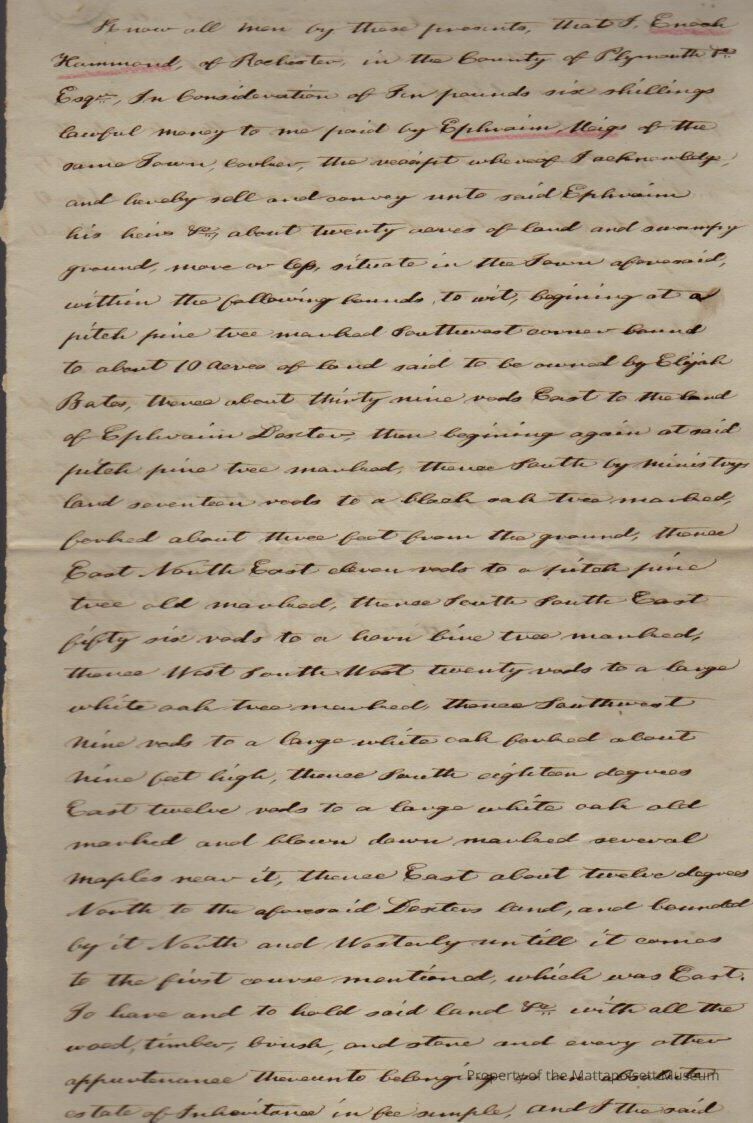 Know all men by these presents, that I, Enoch
Hammond, of Rochester, in the County of Plymouth &c.
Esqr., In Consideration of Ten pounds six shillings
lawful money to me paid by Ephraim Meigs of the
same Town, Cooker, the receipt whereof I acknowledge,
and hereby sell and convey unto said Ephraim
his heirs &c., about twenty acres of land and swampy
ground, more or less, situate in the Town aforesaid,
within the following bounds, to wit, begining at a
pitch pine tree marked Southwest corner bound
to about 10 Acres of land said to be owned by Elijah
Bates, thence about thirty nine rods East to the land
of Ephraim Dexter, then begining again at said
pitch pine tree marked, thence South by ministrys
land seventeen rods to a black oak tree marked,
forked about three feet from the ground, thence
East North East eleven rods to a pitch pine
tree old marked, thence South South East
fifty six rods to a horn bine tree marked,
thence West South West twenty rods to a large
white oak tree marked, thence Southwest
nine rods to a large white oak forked about
nine feet high, thence South eighteen degrees
East twelve rods to a large white oak old
marked and blown down marked several
maples near it, thence East about twelve degrees
North to the aforesaid Dexters land, and bounded
by it North and Westerly untill it comes
to the first course mentioned, which was East.
To have and to hold said land &c. with all the
wood, timber, brush, and stone and every other
appurtenance thereunto belonging
estate of Inheritance in fee simple, And I the said
Property of the Mattapoisett Museum